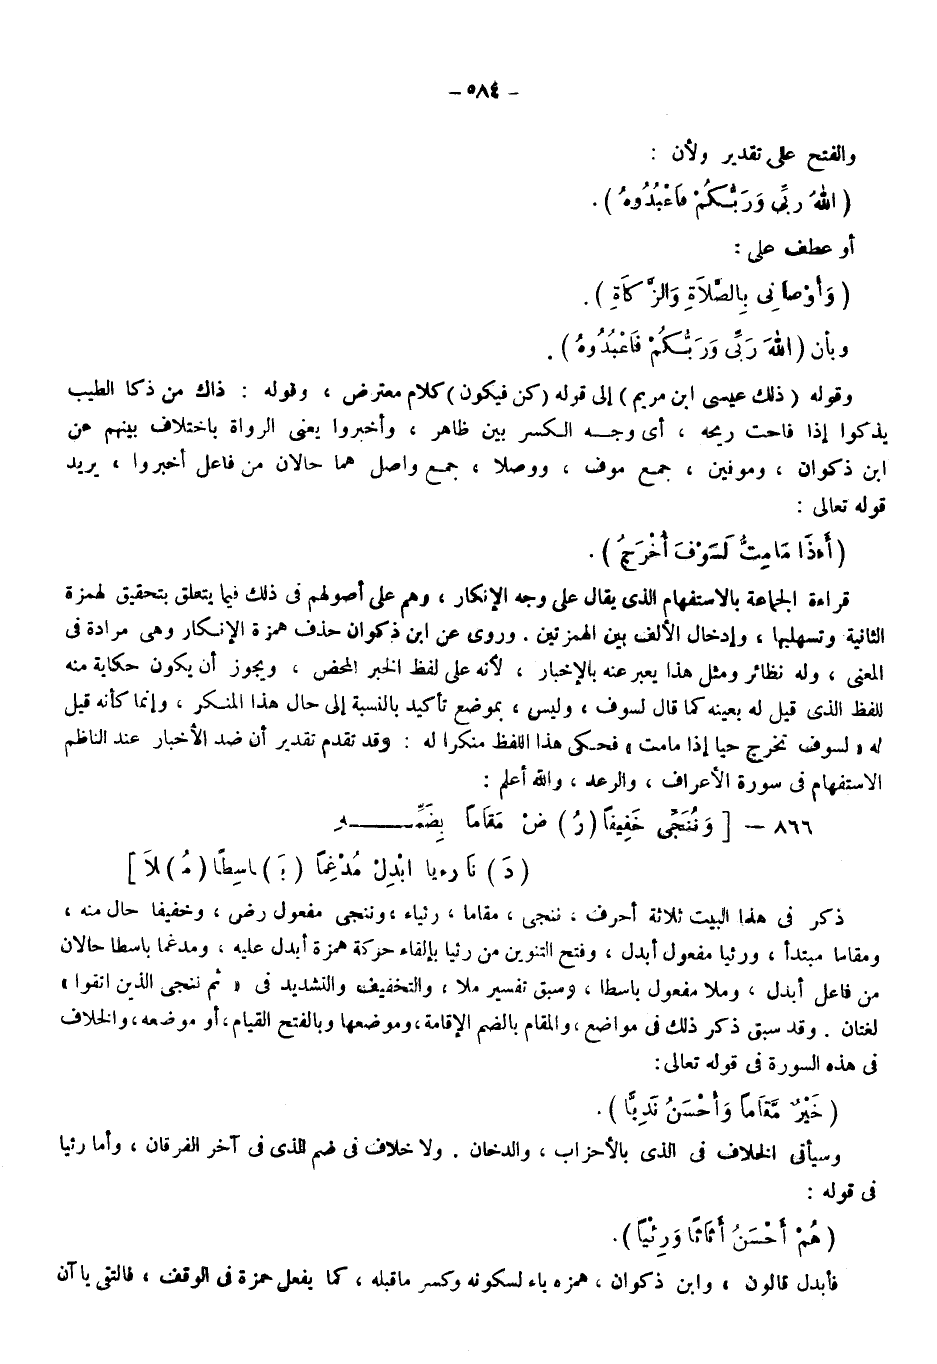 - ٥٨٤ -
والفتح على تقدير ولأن :
( اللهَ ربِّى وَرَبُّكُمْ فاَعْبُدُوهُ ) .
أو عطف على :
( وَأَوْصاَنِى بِالصَّلاَةِ وَالزَّكاَةِ ) .
وبأن ( اللهَ رَبِّى وَرَبُّكُمْ فَاعْبُدُوهُ ) .
وقوله ( ذلك عيسى ابن مريم ) إلى قوله ( كن فيكون ) كلام معترض ، وقوله : ذاك من ذكا الطيب
يذكوا إذا فاحت ريحه ، أى وجه الكسر بين ظاهر ، وأخبروا يعنى الرواة باختلاف بينهم عن
ابن ذكوان ، وموفين ، جمع موف ، ووصلا ، جمع واصل هما حالان من فاعل أخبروا ، يريد
قوله تعالى :
( أَءذَا مَامِتُّ لَسَوْفَ أُخْرَجُ ) .
قراءة الجماعة بالاستفهام الذى يقال على وجه الإنكار ، وهم على أصولهم فى ذلك فيما يتعلق بتحقيق لهمزة
الثانية وتسهليها ، وإدخال الألف بين الهمزتين . وروى عن ابن ذكوان حذف همزة الإنكار وهى مرادة فى
المعنى ، وله نظائر ومثل هذا يعبر عنه بالإخبار ، لأنه على لفظ الخبر المحض ، ويجوز أن يكون حكاية منه
للفظ الذى قيل له بعينه كما قال لسوف ، وليس ، بموضع تأكيد بالنسبة إلى حال هذا المنكر ، وإنما كأنه قيل
له « لسوف تخرج حيا إذا مامت » فحكى هذا اللفظ منكرا له : وقد تقدم تقدير أن ضد الأخبار عند الناظم
الاستفهام فى سورة الأعراف ، والرعد ، والله أعلم :
٨٦٦ - [ وَنُنَجِّى خَفِيفاً ( رُ ) ضْ مَقَاماً بِضَمِّـــــهِ
( دَ ) نَا رءيا ابْدِلْ مُدْغِمًا ( بَ ) اسِطًا ( مُ ) لاَ ]
ذكر فى هذا البيت ثلاثة أحرف ، ننجى ، مقاما ، رئياء ، وننجى مفعول رض ، وخفيفا حال منه ،
ومقاما مبتدأ ، ورئيا مفعول أبدل ، وفتح التنوين من رئيا بإلقاء حركة همزة أبدل عليه ، ومدغما باسطا حالان
من فاعل أبدل ، وملا مفعول باسطا ، وسبق تفسير ملا ، والتخفيف والتشديد فى « ثم ننجى الذين اتقوا »
لغتان . وقد سبق ذكر ذلك فى مواضع ، والمقام بالضم الإقامة ، وموضعها وبالفتح القيام ، أو موضعه ، والخلاف
فى هذه السورة فى قوله تعالى :
( خَيْرٌ مَّقاَماً وَأَحْسَنُ نَدِيًّا ) .
وسيأتى الخلاف فى الذى بالأحزاب ، والدخان . ولا خلاف فى ضم الذى فى آخر الفرقان ، وأما رئيا
فى قوله :
( هُمْ أَحْسَنُ أَثَاثًا وَرِئْيًا ) .
فأبدل قالون ، وابن ذكوان ، همزه ياء لسكونه وكسر ماقبله ، كما يفعل حمزة فى الوقف ، فالتقى ياآن